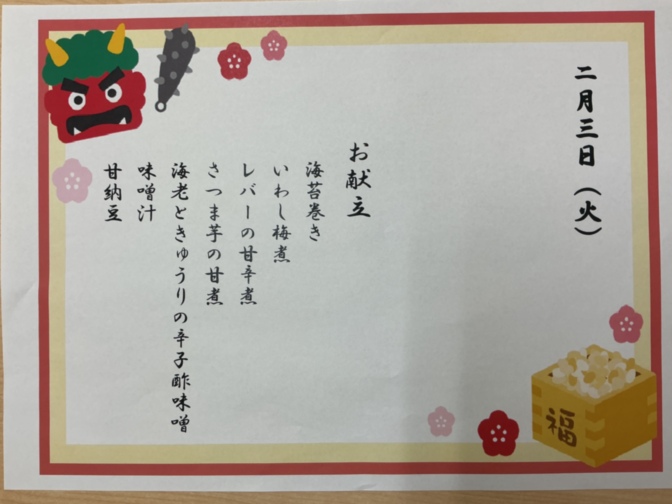 二月三日（火）
お献立
海苔巻き
いわし梅煮
レバーの甘辛煮
さつま芋の甘煮
海老ときゅうりの辛子酢味噌
味噌汁
甘納豆
福